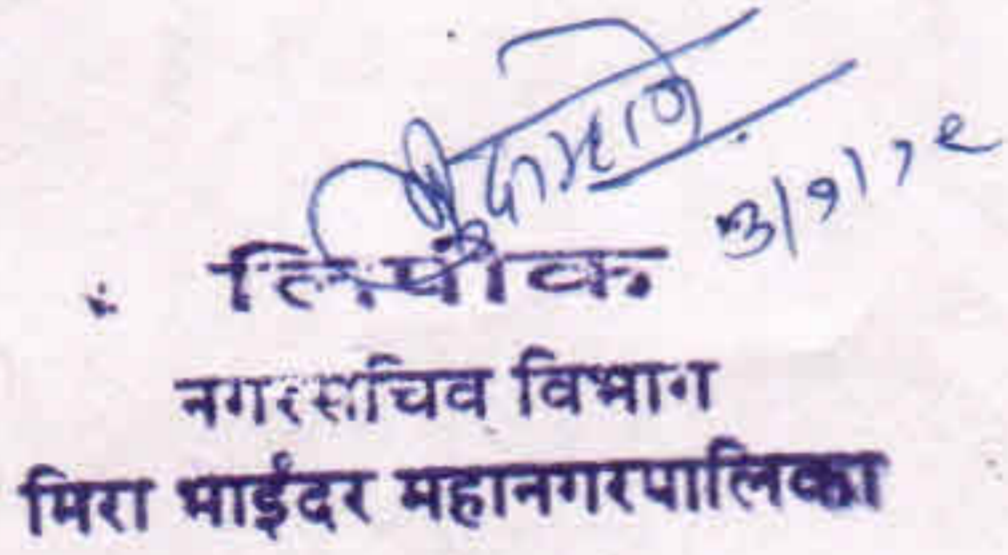 ३/१/१२
लिपीक
नगरसचिव विभाग
मिरा भाईंदर महानगरपालिका